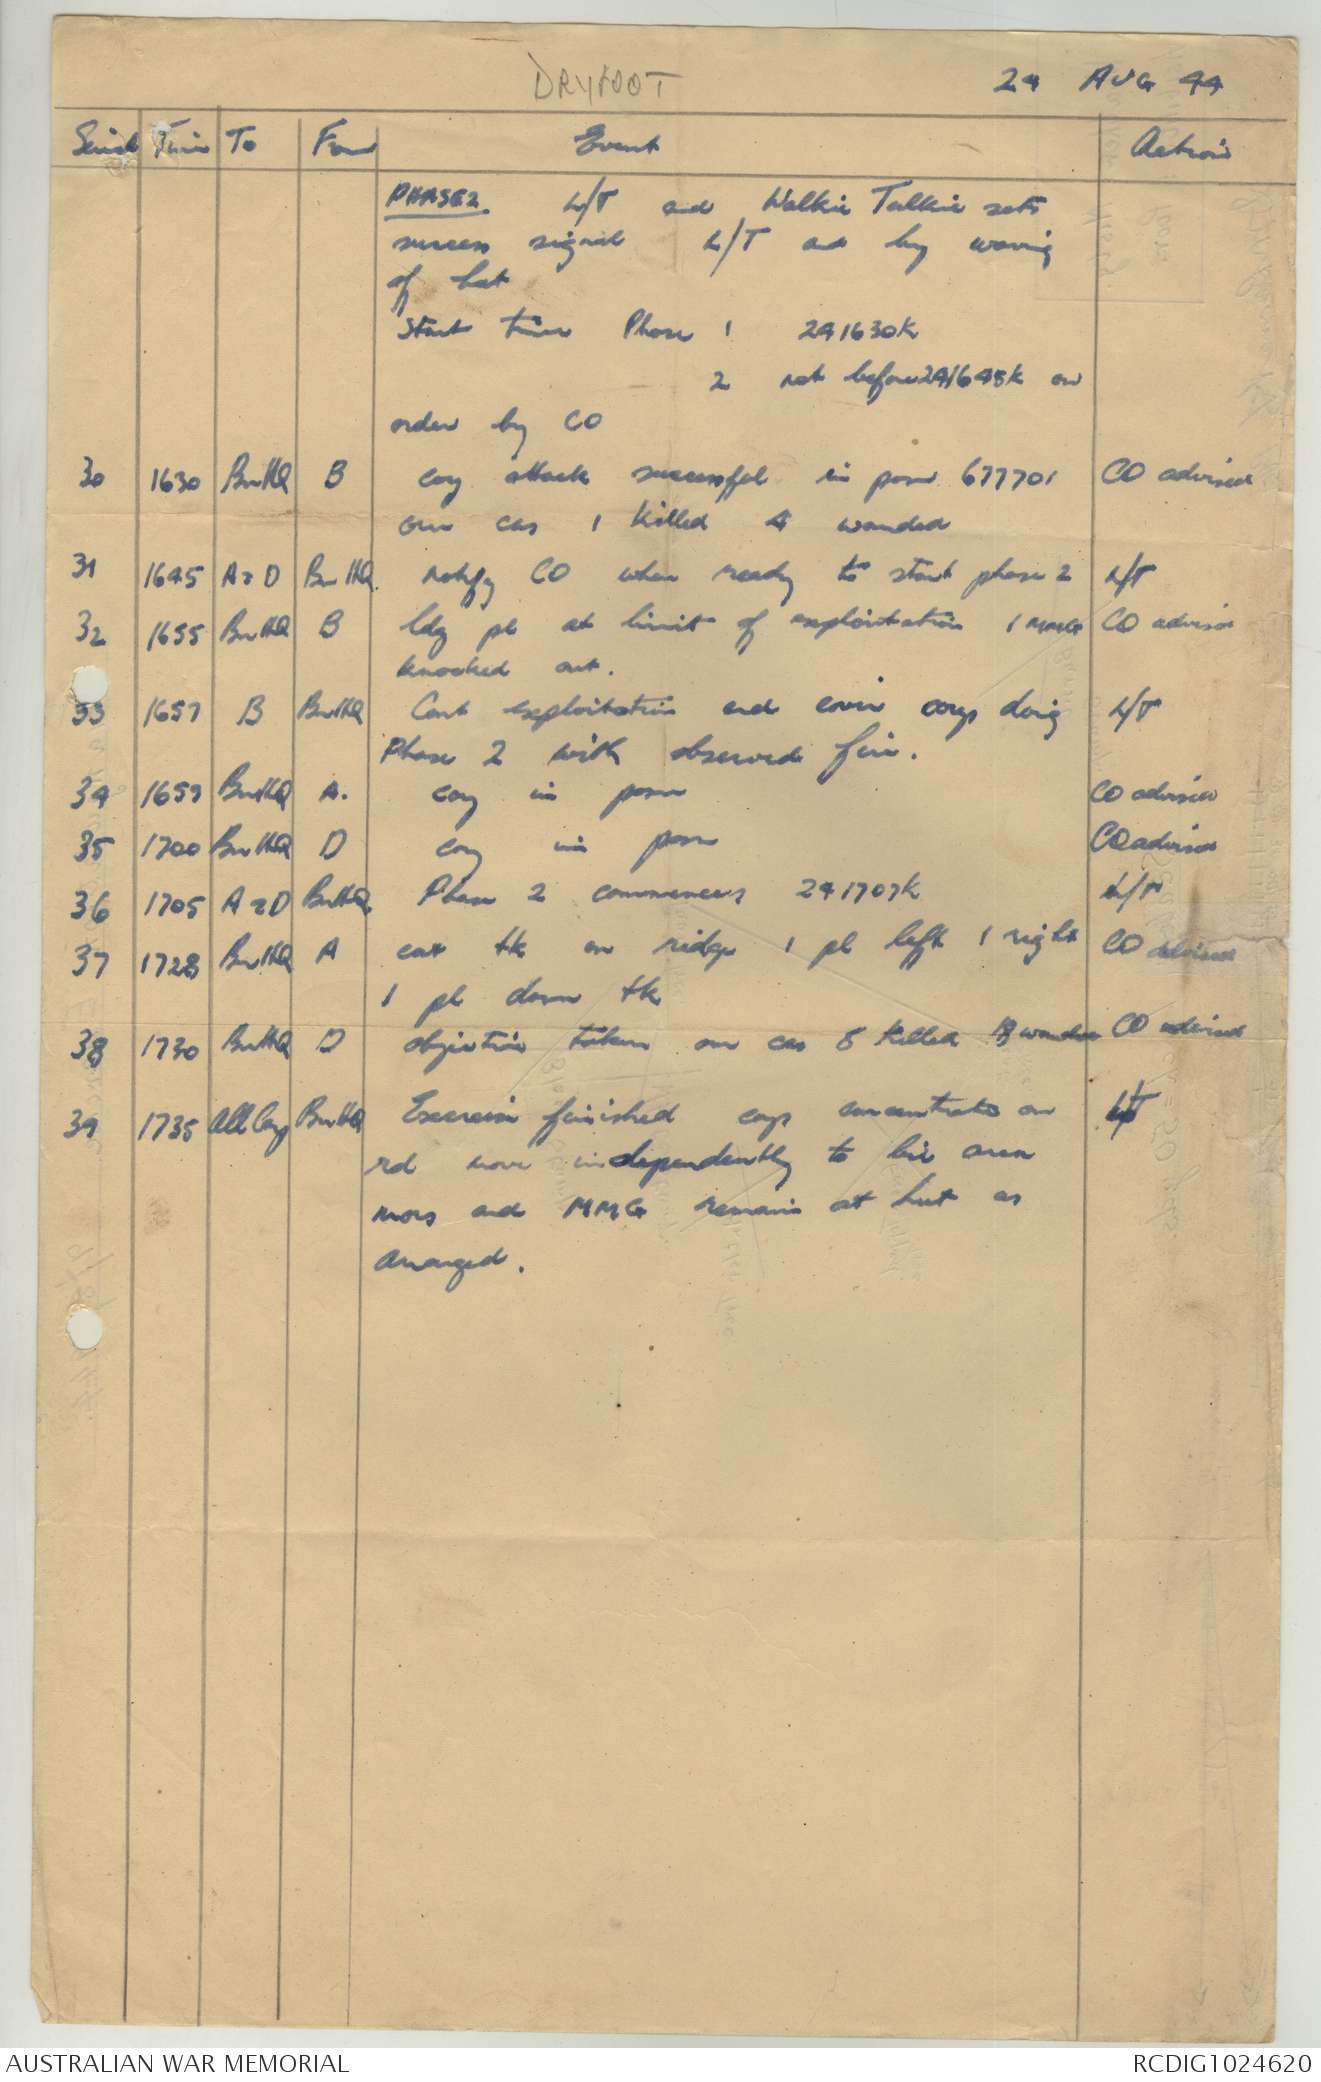 DRYFOOT 24 AUG 44
Serial Time To From Event Action
PHASE 2 L/T and Walkie Talkie sets
success signal L/T and by waving
of hat
Start time Phase 1 241630K
2 not before 241645K on
order by CO
30 1630 BnHQ B coy attack successful in posn 677701 CO advised
own cas 1 killed 4 wounded
31 1645 A & D BnHQ notify CO when ready to start phase 2 L/T
32 1655 BnHQ B ldg pl at limit of exploitation 1 MMG CO advised
knocked out.
33 1657 B BnHQ Cont exploitation and cover coys doing L/T
Phase 2 with observed fire.
34 1659 BnHQ A. coy in posn CO advised
35 1700 BnHQ D coy in posn CO advised
36 1705 A & D BnHQ Phase 2 commences 241707K L/T
37 1728 BnHQ A cut tk on ridge 1 pl left 1 right CO advised
1 pl down tk
38 1730 BnHQ D objective taken own cas 5 killed wounded CO advised
39 1735 All Coys BnHQ Exercise finished coys concentrate on L/T
rd move independently to biv area
mors and MMG remain at hut as
arranged.
AUSTRALIAN WAR MEMORIAL RCDIG1024620